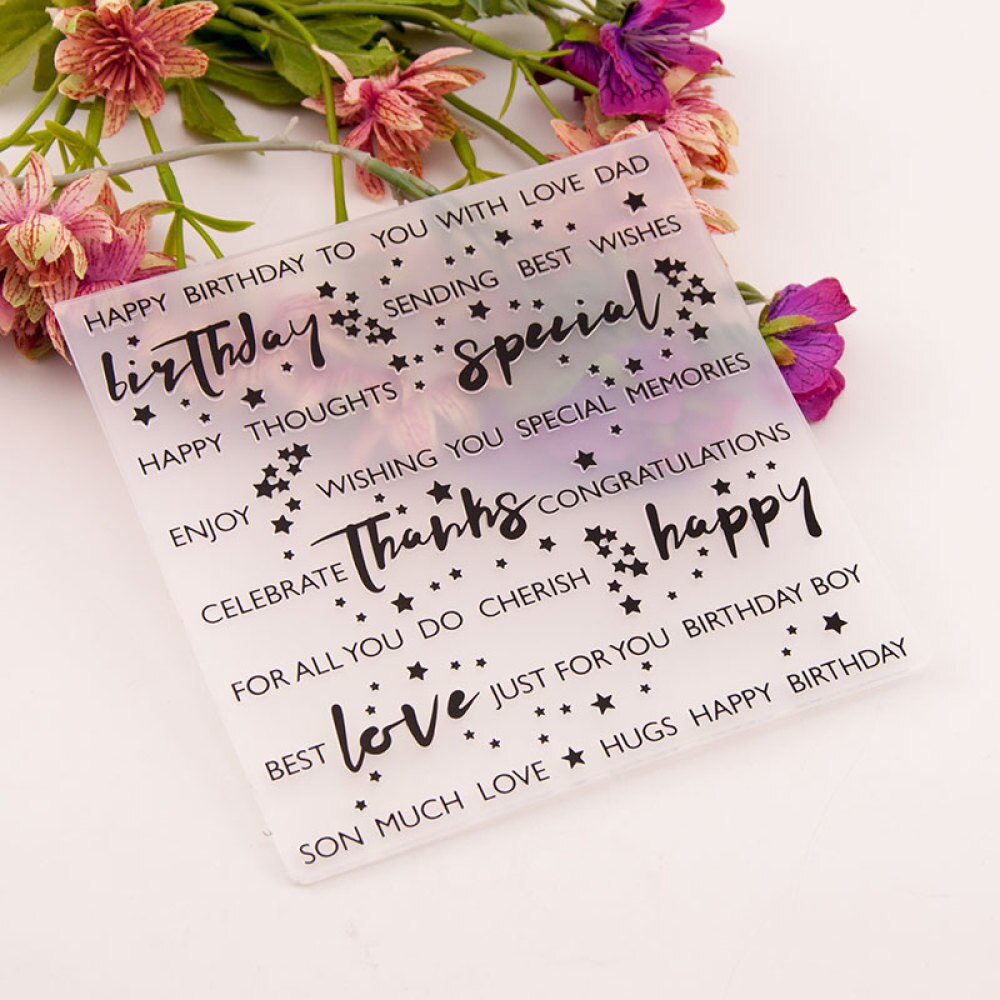 HAPPY BIRTHDAY TO YOU WITH LOVE DAD
birthday SENDING BEST WISHES
HAPPY THOUGHTS special
ENJOY WISHING YOU SPECIAL MEMORIES
CELEBRATE Thanks CONGRATULATIONS
FOR ALL YOU DO CHERISH happy
BEST love JUST FOR YOU BIRTHDAY BOY
SON MUCH LOVE HUGS HAPPY BIRTHDAY